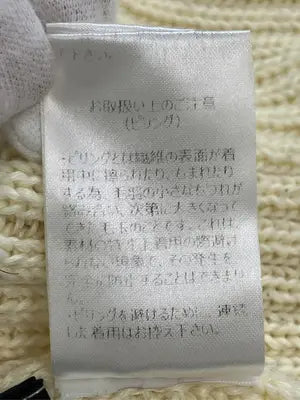 下さい。
お取扱い上のご注意
(ピリング)
・ピリングとは繊維の表面が着
用中に擦られたり、もまれたり
する為、毛羽の小さなもつれが
次第に大きくなって
できた毛玉のことです。これは、
素材の特性上着用の際避け
られない現象で、その発生を
完全に防止することはできませ
ん。
・ピリングを避けるために、連続
した着用はお控え下さい。